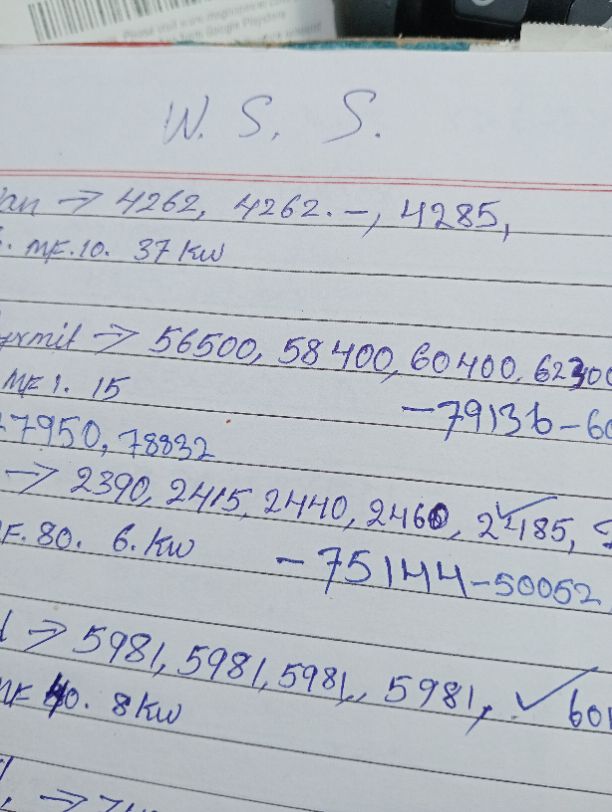 W. S. S.
an → 4262, 4262.-, 4285,
. MF.10. 37 KW
rmit → 56500, 58400, 60400, 62300
MF 1. 15
-79136-60
7950, 78832
→ 2390, 2415, 2440, 2460, 2485,
F. 80. 6. KW
-75144-50052
→ 5981, 5981, 5981, 5981, ✓ 601
MF 40. 8 KW
→